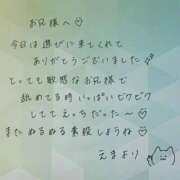 お兄様へ♡
今日は遊びに来てくれて
ありがとうございました
とっても敏感なお兄様で
舐めてる時いっぱいビクビク
しててえっちだった〜♡
またぬるぬる素股しようね♡
えまより